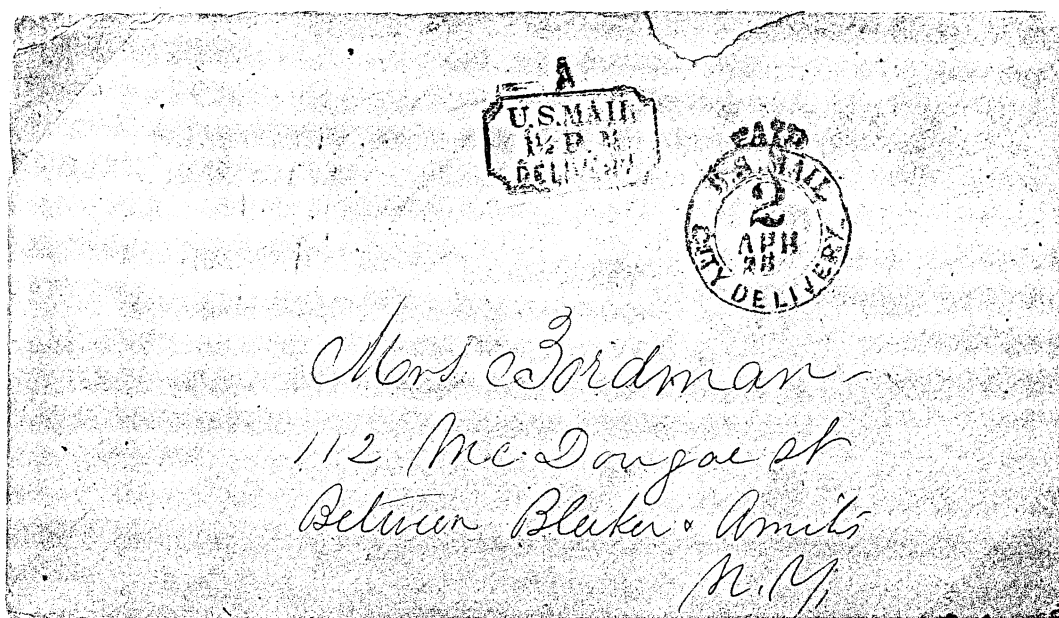 A
U.S. MAIL
1½ P. M.
DELIVERY
PAID
U.S. MAIL
2
APR
28
CITY DELIVERY.
Mrs. Bordman -
112 Mc. Dougae st
Between Bleeker & Amits
N. Y.